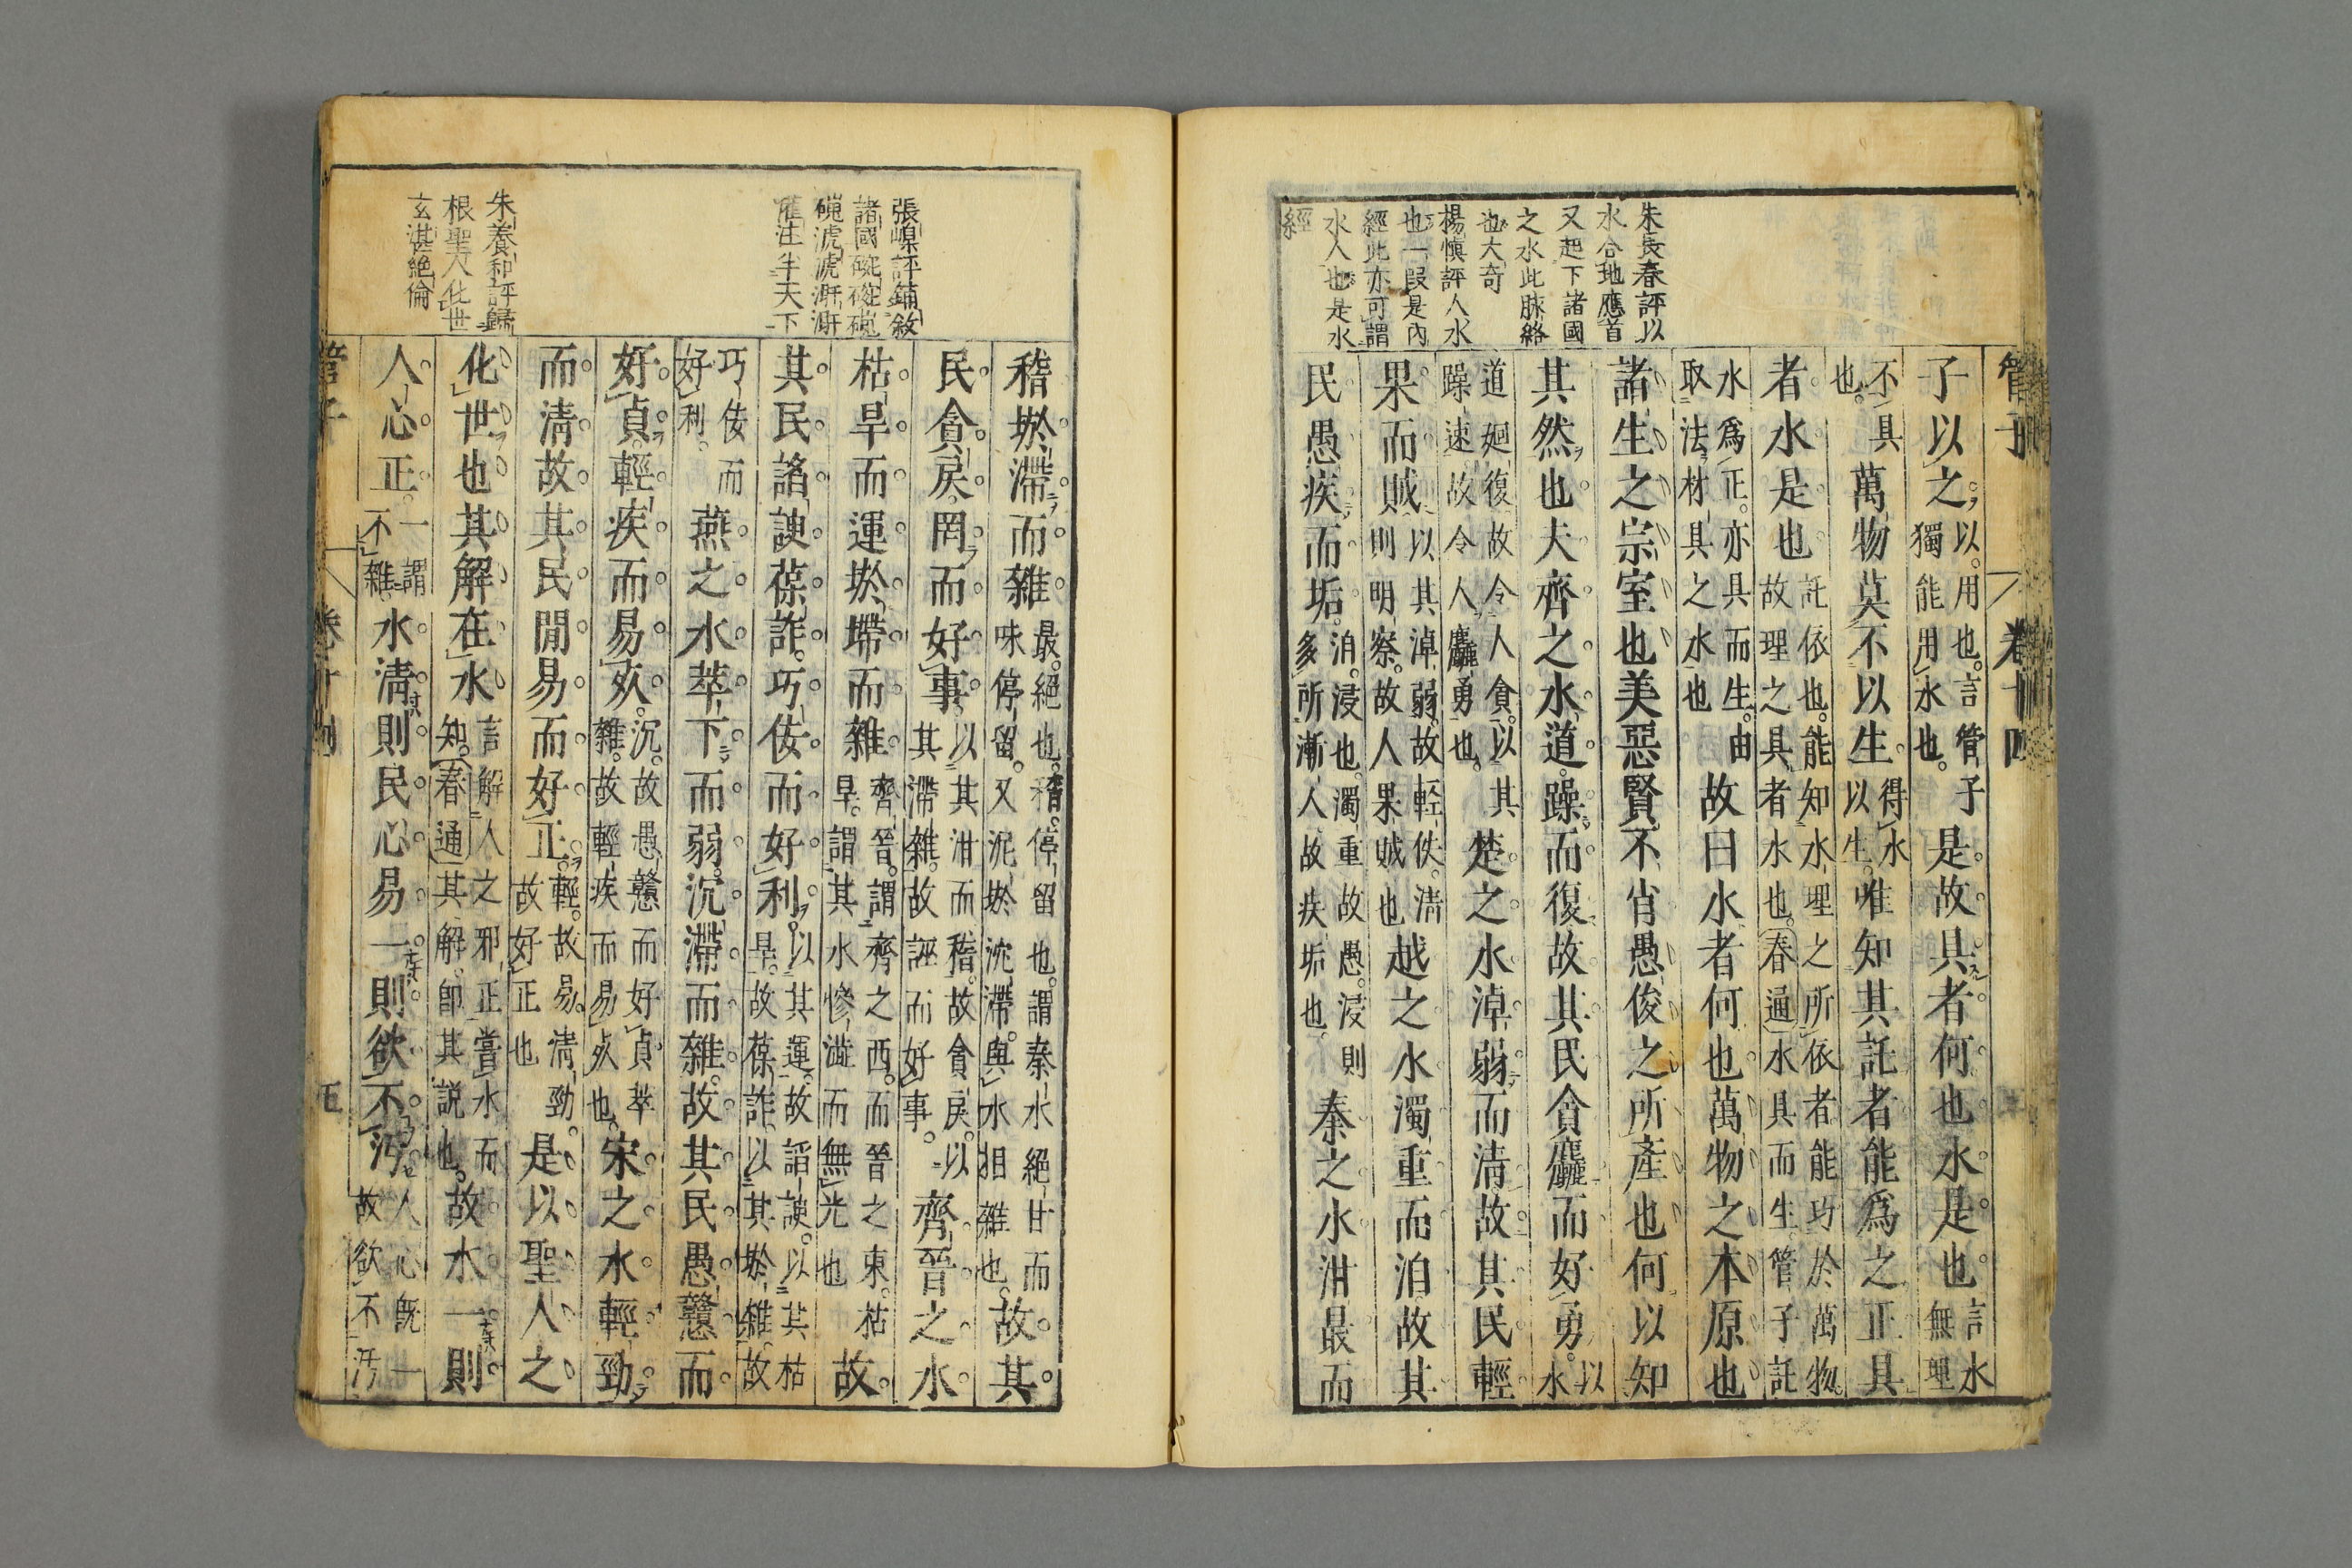 管子
卷十四
朱長春評以
水合地應首
又起下諸國
之水此脉絡
也大奇
楊慎評人水
也一段是內
經此亦可謂
水人也是水
經
子以之以用也言管子獨能用水也是故具者何也水是也言水無理
不具也萬物莫不以生得水以生唯知其託者能爲之正具
者水是也託依也能知水理之所依者能巧於萬物故理之具者水也春通水具而生管子託
水爲正亦具而生由取法材具之水也故曰水者何也萬物之本原也
諸生之宗室也美惡賢不肖愚俊之所產也何以知
其然也夫齊之水道躁而復故其民貪麤而好勇以水
道廻復故令人貪以其躁速故令人麤勇也楚之水淖弱而清故其民輕
果而賊以其淖弱故輕佚清則明察故人果賊也越之水濁重而洎故其
民愚疾而垢洎浸也濁重故愚浸則多所漸人故疾垢也秦之水泔最而
張嵲評鋪敘
諸國磫磫磈
磈滮滮湝湝
灌注半天下
朱養和評歸
根聖人化世
玄湛絕倫
稽㳻滯而雜最絕也稽停留也謂秦水絕甘而味停留又泥㳻沈滯與水相雜也故其
民貪戾罔而好事以其泔而稽故貪戾以其滯雜故誣而好事齊晉之水
枯旱而運㳻墆而雜齊晉謂齊之西而晉之東枯旱謂其水慘澁而無光也故
其民諂諛葆詐巧佞而好利以其運故諂諛以其枯旱故葆詐以其㳻雜故
巧佞而好利燕之水萃下而弱沉滯而雜故其民愚戇而
好貞輕疾而易死沉故愚戇而好貞萃雜故輕疾而易死也宋之水輕勁
而清故其民閒易而好正輕故易清勁故好正也是以聖人之
化世也其解在水言解人之邪正嘗水而知春通其解節其説也故水一則
人心正一謂不雜水清則民心易一則欲不汚人心旣一故欲不汚
管子
卷十四
五